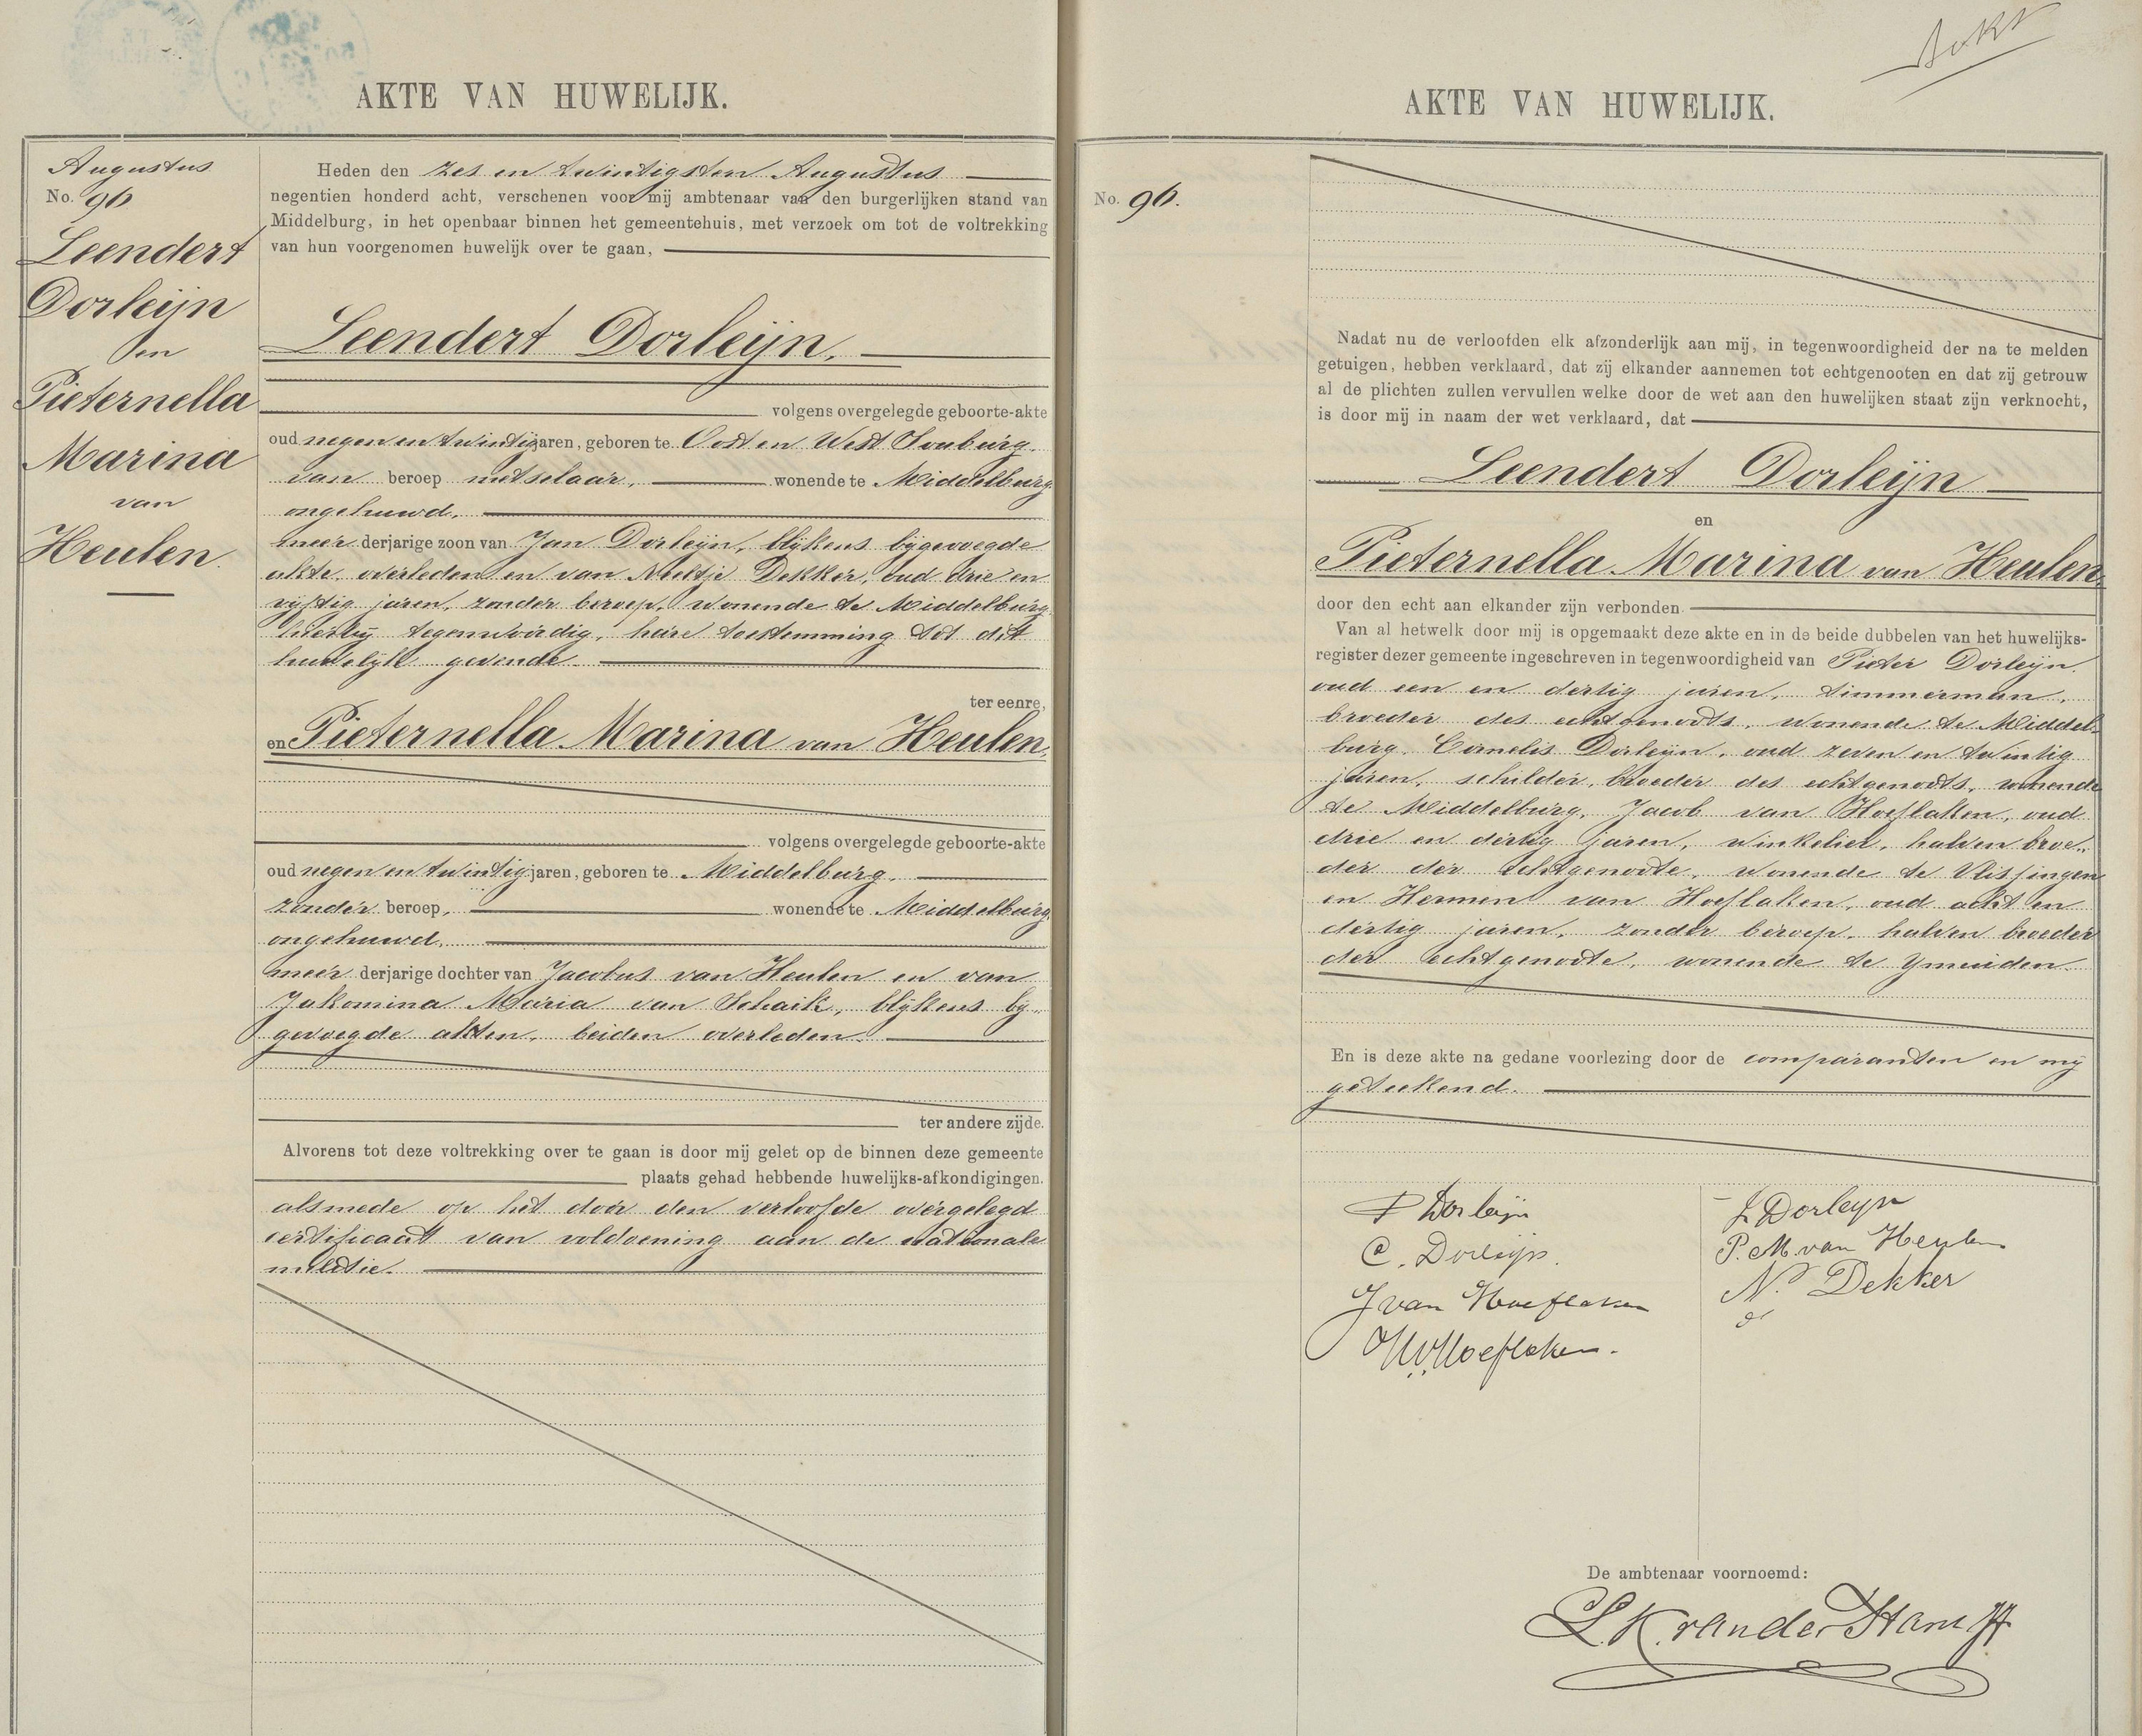 AKTE VAN HUWELIJK.
Augustus
No. 96
Leendert
Dorleijn
en
Pieternella
Marina
van
Heulen.
Heden den zes en twintigsten Augustus
negentien honderd acht, verschenen voor mij ambtenaar van den burgerlijken stand van
Middelburg, in het openbaar binnen het gemeentehuis, met verzoek om tot de voltrekking
van hun voorgenomen huwelijk over te gaan,
Leendert Dorleijn,
volgens overgelegde geboorte-akte
oud negen en twintig jaren, geboren te Oost en West Souburg.
van beroep metselaar, wonende te Middelburg
ongehuwd,
meer derjarige zoon van Jan Dorleijn, blijkens bijgevoegde
akte overleden en van Neeltje Dekker, oud drie en
vijftig jaren, zonder beroep, wonende te Middelburg
hierbij tegenwoordig, hare toestemming tot dit
huwelijk gevende
ter eenre,
en Pieternella Marina van Heulen,
volgens overgelegde geboorte-akte
oud negen en twintig jaren, geboren te Middelburg.
zonder beroep, wonende te Middelburg.
ongehuwd,
meer derjarige dochter van Jacobus van Heulen en van
Jakomina Maria van Schaik, blijkens bij-
gevoegde akten, beiden overleden.
ter andere zijde.
Alvorens tot deze voltrekking over te gaan is door mij gelet op de binnen deze gemeente
plaats gehad hebbende huwelijks-afkondigingen.
alsmede op het door den verloofde overgelegd
certificaat van voldoening aan de nationale
militie.
AKTE VAN HUWELIJK.
No. 96.
Nadat nu de verloofden elk afzonderlijk aan mij, in tegenwoordigheid der na te melden
getuigen, hebben verklaard, dat zij elkander aannemen tot echtgenooten en dat zij getrouw
al de plichten zullen vervullen welke door de wet aan den huwelijken staat zijn verknocht,
is door mij in naam der wet verklaard, dat
Leendert Dorleijn
en
Pieternella Marina van Heulen,
door den echt aan elkander zijn verbonden.
Van al hetwelk door mij is opgemaakt deze akte en in de beide dubbelen van het huwelijks-
register dezer gemeente ingeschreven in tegenwoordigheid van Pieter Dorleijn.
oud een en dertig jaren, timmerman,
broeder des echtgenoots, wonende te Middel-
burg, Cornelis Dorleijn, oud zeven en twintig
jaren, schilder, broeder des echtgenoots, wonende
te Middelburg, Jacob van Hoeflaken, oud
drie en dertig jaren, winkelier, halven broe-
der der echtgenoote, wonende te Vlissingen
en Hermen van Hoeflaken, oud acht en
dertig jaren, zonder beroep, halven broeder
der echtgenoote, wonende te Ymuiden.
En is deze akte na gedane voorlezing door de comparanten en mij
geteekend.
P Dorleijn
C. Dorleijn.
J van Hoeflaken
H v. Hoeflaken.
L Dorleyn
P. M. van Heulen
N. Dekker
De ambtenaar voornoemd: